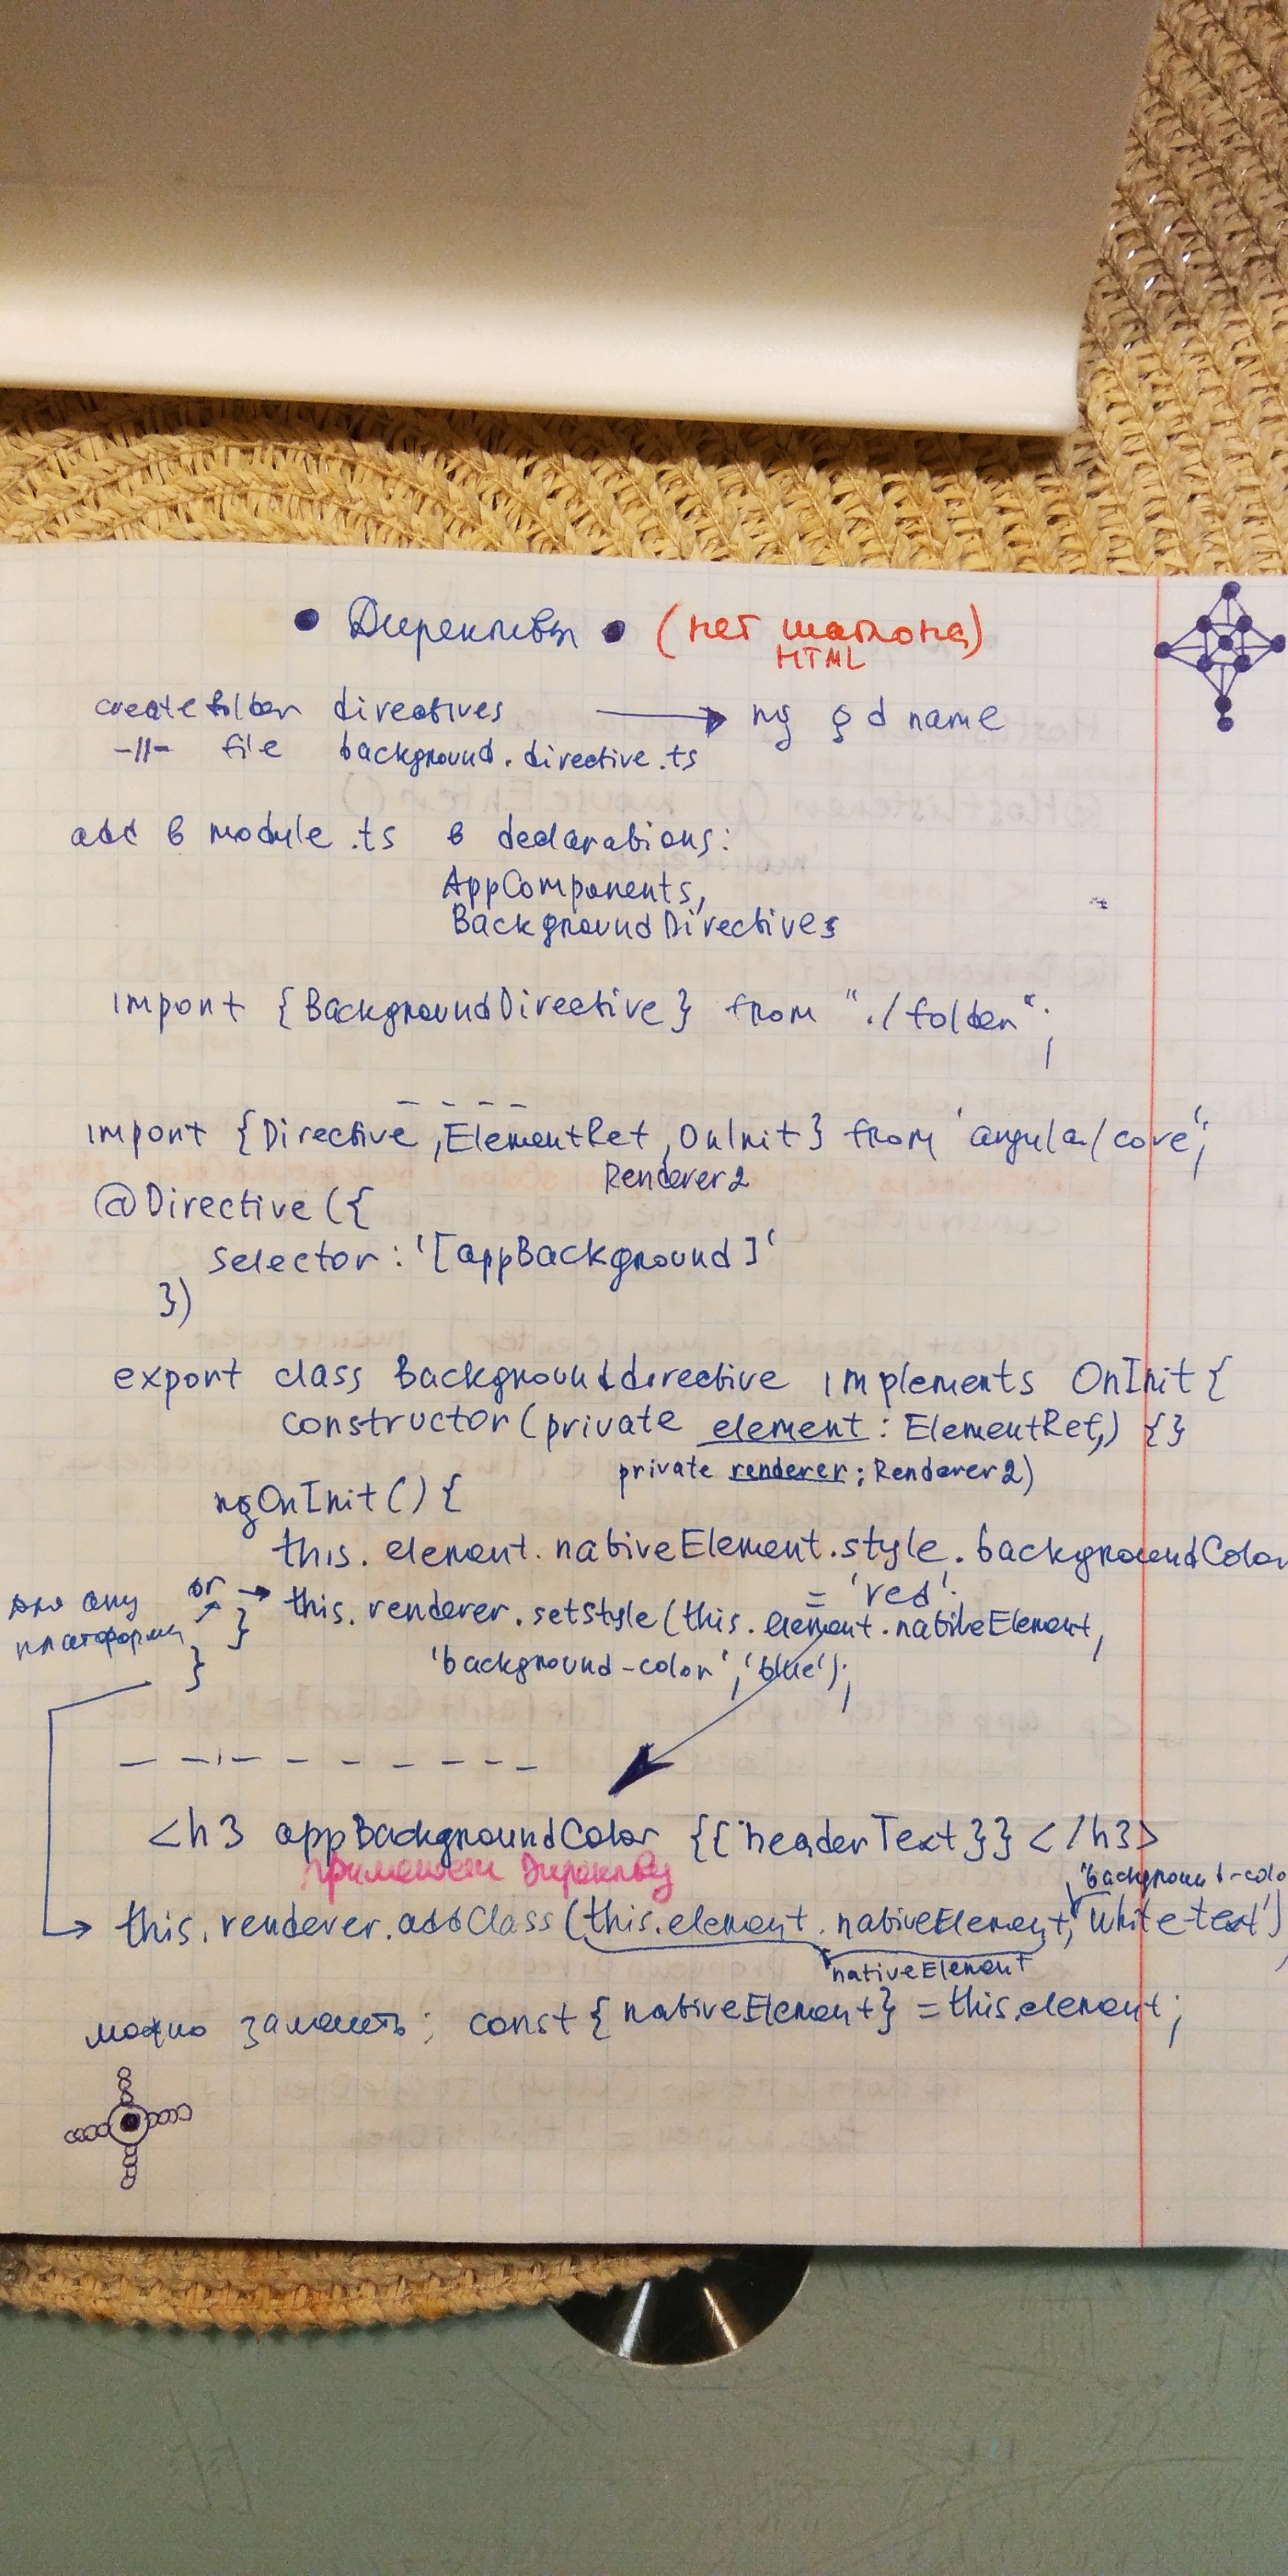 • Директивы • (нет шаблона)
HTML
create folder directives → ng g d name
-||- file background.directive.ts
add в module.ts в declarations:
AppComponents,
BackgroundDirectives
import {BackgroundDirective} from "./folder";
import {Directive, ElementRef, OnInit} from 'angular/core';
Renderer2
@Directive({
selector: '[appBackground]'
})
export class Backgrounddirective implements OnInit {
constructor(private element: ElementRef,) {}
private renderer: Renderer2)
ngOnInit() {
this.element.nativeElement.style.backgroundColor
= 'red';
для any
платформы
or → this.renderer.setStyle(this.element.nativeElement,
}
'background-color', 'blue');
}
<h3 appBackgroundColor {{headerText}}</h3>
применяем Директиву
'background-colo
→ this.renderer.addClass(this.element.nativeElement, 'white-text')
nativeElement
можно заменить: const {nativeElement} = this.element;